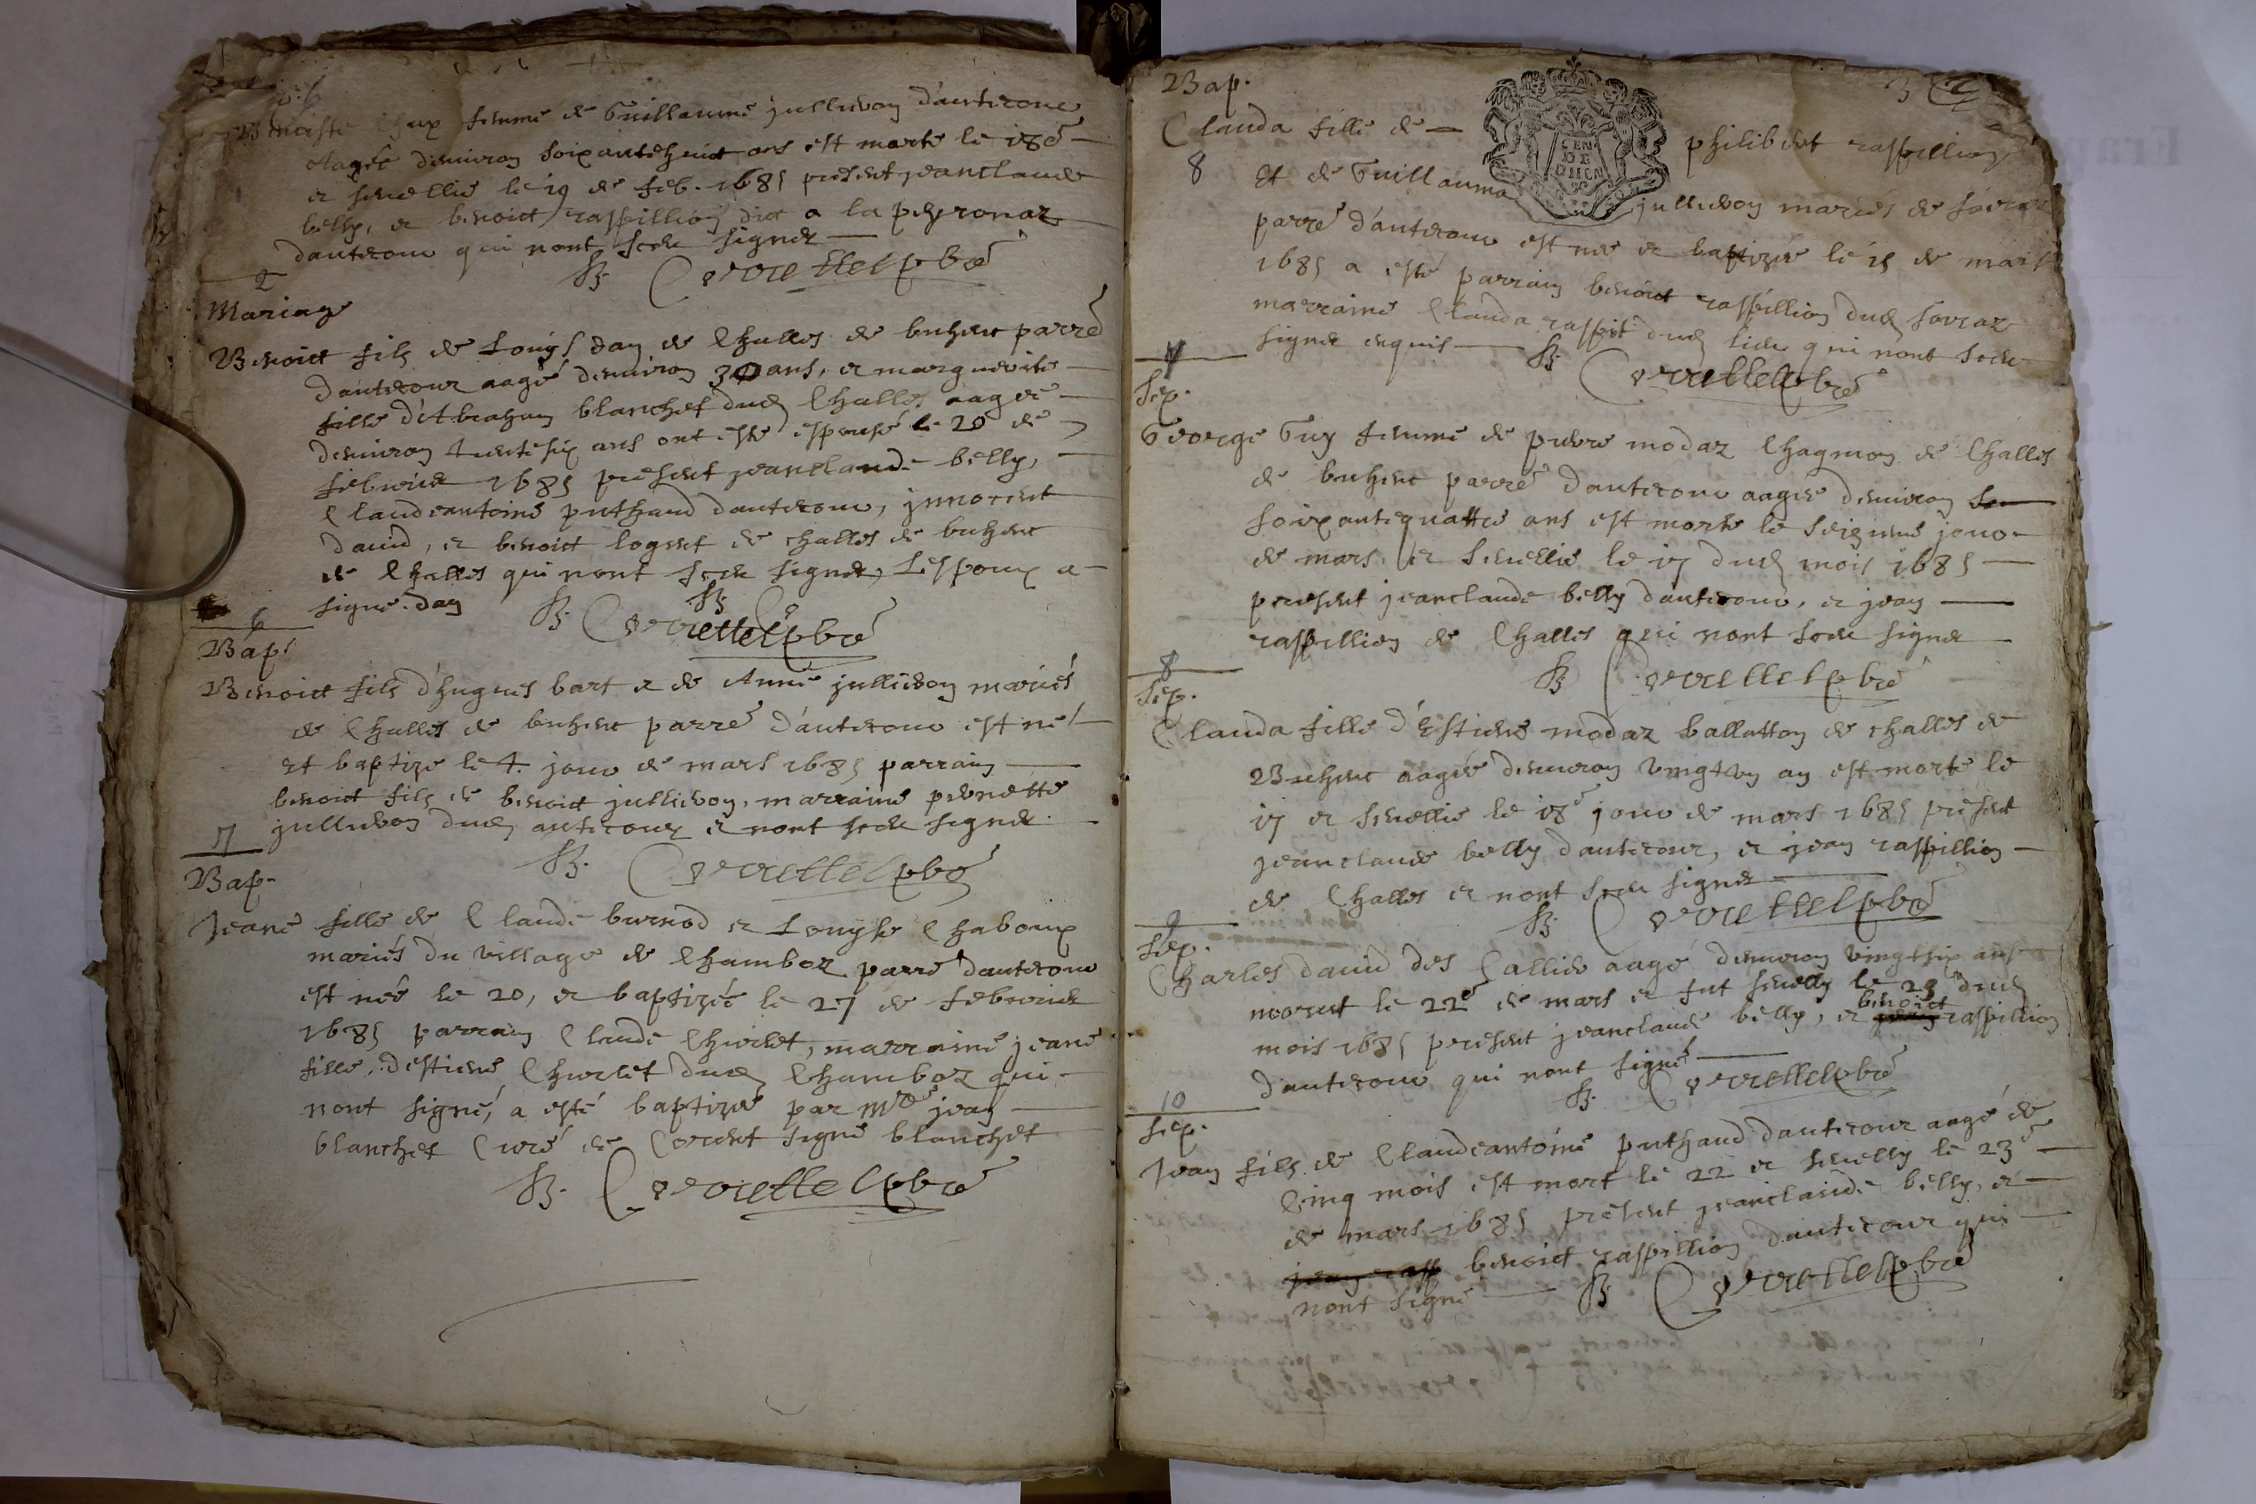 femme de Guillaume jullieron d'auterour
aagée denviron soixantehuict ans est morte le 18e
et sevellie le 19 de feb. 1685 present jeanclaude
belly, et benoict raspillion dict a la peyronaz
dauterour qui nont sceu signer
2
Mariage
Benoict fils de Louys Day de Challes de buhenc parre
dauterour aagé denviron 30 ans, et marguerite
fille d'Abraham blanchet dud Challes aagée
denviron trentesix ans ont esté espousé le 20 de
febvrier 1685 present jeanclaude belly,
Claudeantoine puthaud dauterour, jnnocent
david, et benoict logent de challes de buhenc
de Challes qui nont sceu signer, Lespoux a
signe. day
6
Bap.
Benoict fils d'hugues bart et de Anne jullieron mariés
de Challes de buhenc parre d'auterour est né
et baptize le 4. jour de mars 1685 parrain
benoict fils de benoict jullieron, marraine pernette
jullieron dud auterour et nont sceu signer.
7
Bap.
Jeane fille de Claude burnod et Louyse Chaboux
mariés du village de Chamboz parre dauterour
est née le 20, et baptizée le 27 de febvrier
1685 parrain Claude Chirlet, marraine jeane
fille, destiene Chirlet dud Chamboz qui
nont signé, a esté baptizée par Mre jean
blanchet Curé de Corent signé blanchet
Bap.
3
Clauda fille de philibert raspillion
8
Et de Guillauma jullieron mariés de sovraz
parre d'auterour est née et baptizée le 15 de mars
1685 a esté parrain benoict raspillion dud sovraz
marraine Clauda raspit dud lieu qui nont sceu
signer enquis
7
Sep.
George Guy femme de pierre modaz Chagnon de Challes
de buhenc parre dauterour aagée denviron
soixantequattre ans est morte le seizieme jour
de mars et sevellie le 17 dud mois 1685
present jeanclaude belly dauterour, et jean
raspillion de Challes qui nont sceu signer
8
Sep.
Clauda fille d'Estiene modaz ballatton de challes de
Buhenc aagée denviron vingtun an est morte le
17 et sevellie le 18e jour de mars 1685 present
jeanclaude belly dauterour, et jean raspillion
de Challes et nont sceu signer
9
Sep.
Charles david des Callies aagé denviron vingtsix ans
mourut le 22e de mars et fut sevelly le 23e dud
mois 1685 present jeanclaude belly, et benoict raspillion
dauterour qui nont signé
10
Sep.
Jean fils de Claudeantoine puthaud dauterour aagé de
Cinq mois est mort le 22 et sevelly le 23e
de mars 1685 present jeanclaude belly, et
jean rasp benoict raspillion dauterour qui
nont signé